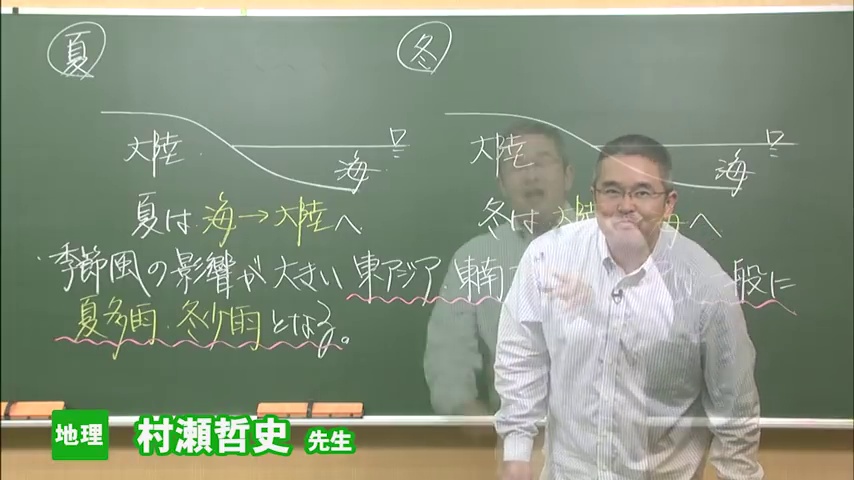 夏 冬
大陸 海
大陸 海
夏は 海→大陸へ
冬は 大陸 へ
季節風の影響が大きい 東アジア、東南 一般に
夏多雨、冬少雨となる。
地理 村瀬哲史 先生